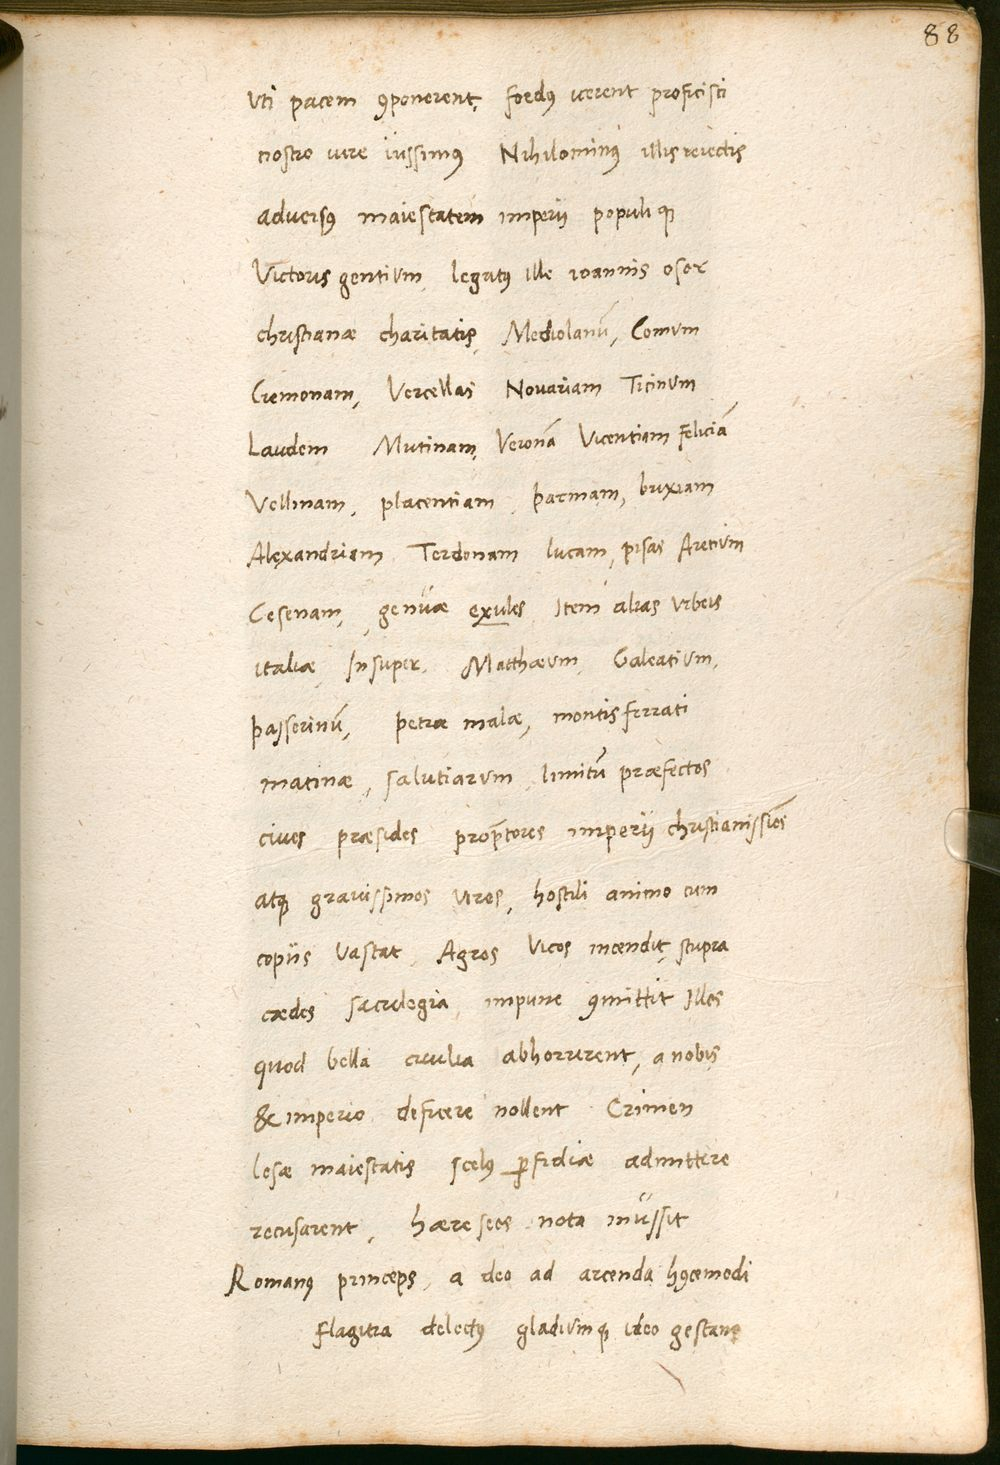 88
Vti pacem ꝯponerent, foedꝰ icerent proficisci
nostro iure iussimꝰ Nihilominꝰ illis reiectis
aduersꝰ maiestatem imperij populi qꝫ
Victoris gentium, legatꝰ ille ioannis osor
christianæ charitatis, Mediolanū, Comum
Cremonam, Vercellas Nouariam Ticinum
Laudem Mutinam, Veronā Vicentiam feliciā
Vellinam, placentiam, parmam, brixiam
Alexandriam Terdonam lucam, pisas Aretium
Cesenam, genuæ exules Item alias vrbeis
italiæ, Insuper, Matthæum, Galeatium,
passerinū, petræ malæ, montis ferrati
matinæ, salutiarum, limitū præfectos
ciues præsides prop̄tores imperij christianissi̅os
atqꝫ grauissimos viros, hostili animo cum
copijs vastat, Agros vicos incendit, stupra
cædes sacrilegia, impune ꝯmittit Illos
quod bella ciuilia abhorrirent, a nobis
& imperio deficere nollent Crimen
lesæ maiestatis scelꝰ ꝑfidiæ admittere
recusarent, hæreseos nota inussit
Romanꝰ princeps, a deo ad arcenda hꝰcemodi
flagitia delectꝰ gladiumqꝫ ideo gestans